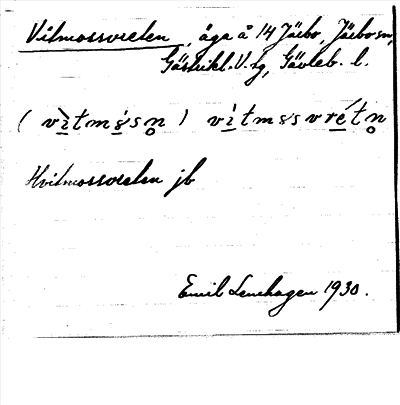 Vitmossvreten, äga å 14 Järbo, Järbo sn,
Gästrikl. V. tg, Gävleb. l.
(vi̲tms̲sn̥) vi̲tmssvre̲tn̥
Hvitmossvreten jb
Emil Lenehagen 1930.